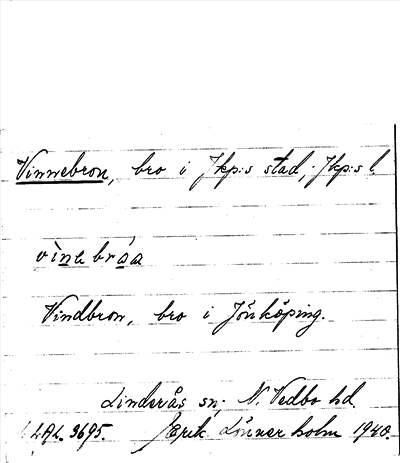 Vinnebron, bro i Jkp:s stad, Jkp:s l.
vìnebråa
Vindbron, bro i Jönköping.
Linderås sn; N. Vedbo hd.
LAL. 3695. Erik Lönnerholm 1940.